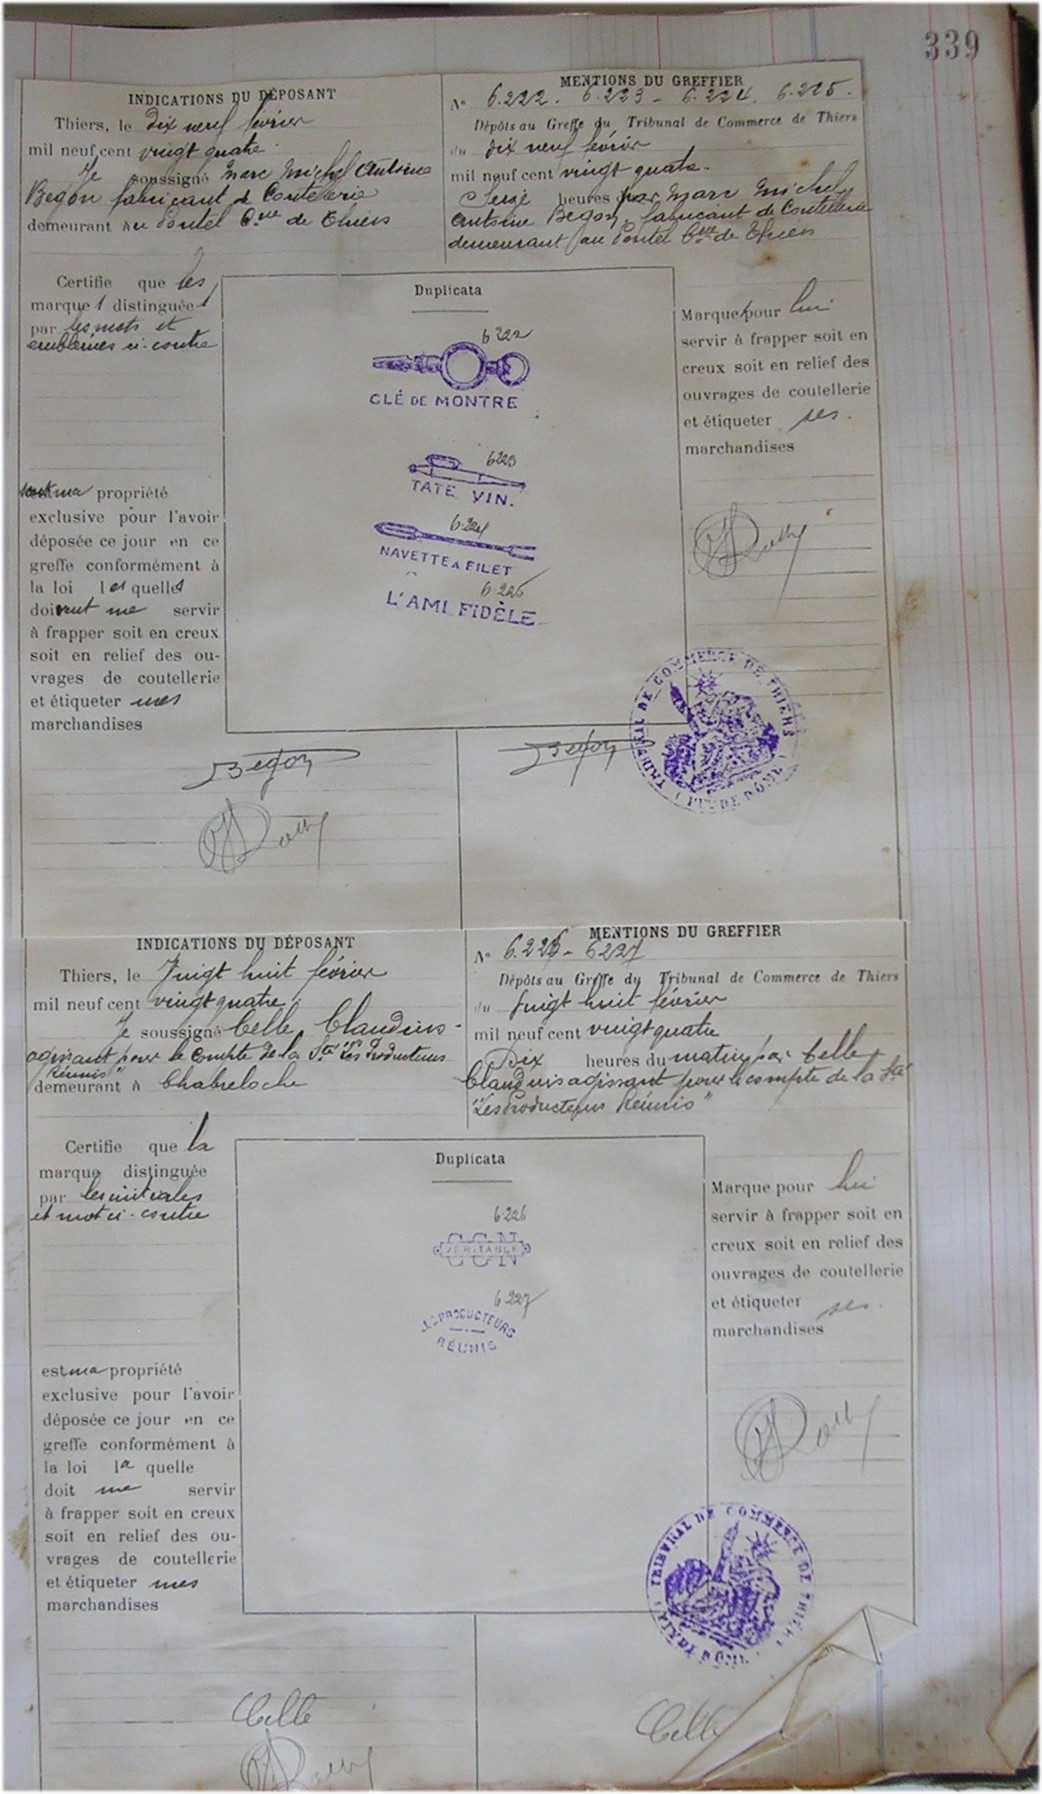 339
INDICATIONS DU DÉPOSANT
Thiers, le Dix neuf février
mil neuf cent vingt quatre
Je soussigné Marc Michel Antoine
Begon fabricant de Coutellerie
demeurant au Pontel Cne de Thiers
MENTIONS DU GREFFIER
No 6.222. 6.223 - 6.224. 6.225.
Dépôts au Greffe du Tribunal de Commerce de Thiers
du Dix neuf février
mil neuf cent vingt quatre.
heures par Marc Michel
Antoine Begon, fabricant de Coutellerie
demeurant au Pontel Cne de Thiers
Certifie que les
marques distinguées
par les mots et
emblèmes ci-contre
sont ma propriété
exclusive pour l'avoir
déposée ce jour en ce
greffe conformément à
la loi lesquelles
doivent me servir
à frapper soit en creux
soit en relief des ou-
vrages de coutellerie
et étiqueter mes
marchandises
Duplicata
6222
CLÉ DE MONTRE
6223
TATE VIN.
6.224
NAVETTE A FILET
6225
L'AMI FIDÈLE
Marque pour lui
servir à frapper soit en
creux soit en relief des
ouvrages de coutellerie
et étiqueter ses.
marchandises
TRIBUNAL DE COMMERCE DE THIERS
(PUY DE DÔME)
Begon
Begon
INDICATIONS DU DÉPOSANT
Thiers, le Vingt huit février
mil neuf cent vingt quatre
Je soussigné Celle Claudius
agissant pour le compte de la Sté "Les Producteurs
Réunis"
demeurant à Chabreloche
MENTIONS DU GREFFIER
No 6.226 - 6227
Dépôts au Greffe du Tribunal de Commerce de Thiers
du Vingt huit février
mil neuf cent vingt quatre
Dix heures du matin par Celle
Claudius agissant pour le compte de la Sté
"Les Producteurs Réunis"
Certifie que la
marque distinguée
par les initiales
et mot ci-contre
est ma propriété
exclusive pour l'avoir
déposée ce jour en ce
greffe conformément à
la loi laquelle
doit me servir
à frapper soit en creux
soit en relief des ou-
vrages de coutellerie
et étiqueter mes
marchandises
Duplicata
6226
VÉRITABLE
6227
LES PRODUCTEURS
RÉUNIS
Marque pour lui
servir à frapper soit en
creux soit en relief des
ouvrages de coutellerie
et étiqueter ses.
marchandises
TRIBUNAL DE COMMERCE DE THIERS
Celle
Celle